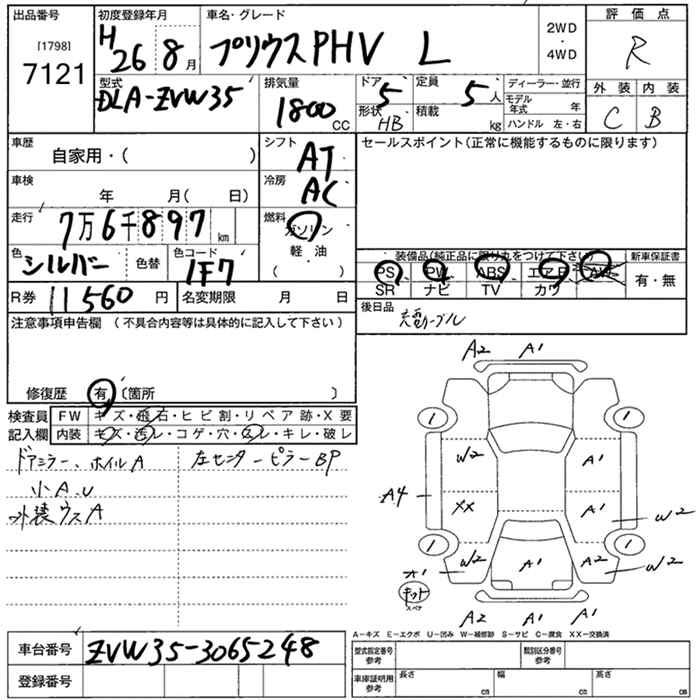 出品番号 初度登録年月 車名・グレード 2WD・4WD 評価点
[1798]
7121 H26 8月 プリウスPHV L R
型式 排気量 ドア 定員 ディーラー・並行 外装 内装
DLA-ZVW35 1800CC 5 5人 モデル年式 年 C B
形状 HB 積載 kg ハンドル 左・右
車歴 シフト セールスポイント(正常に機能するものに限ります)
自家用・( ) AT
車検 冷房
年 月( 日) AC
走行 燃料
7万6千897km ガソリン
色 色コード 軽油
シルバー 色替 1F7 ( )
装備品(純正品に限り丸をつけて下さい) 新車保証書
PS PW ABS エアB AW 有・無
SR ナビ TV カワ
R券 11560円 名変期限 月 日
後日品 充電ケーブル
注意事項申告欄 (不具合内容等は具体的に記入して下さい)
修復歴 有 (箇所 )
検査員記入欄
FW キズ・飛石・ヒビ割・リペア跡・X要
内装 キズ・汚レ・コゲ・穴・スレ・キレ・破レ
ドアミラー、ホイルA 左センターピラーBP
小A、U
外装ウスA
A2 A1
1 1
W2 A1
A4
XX A1 W2
1 1
W2 A1 A2 W2
キット
スペア
A2 A1 A1
A-キズ E-エクボ U-凹み W-補修跡 S-サビ C-腐食 XX-交換済
車台番号 ZVW35-3065248
型式指定番号 参考 類別区分番号 参考
登録番号
車庫証明用 参考 長さ cm 幅 cm 高さ cm